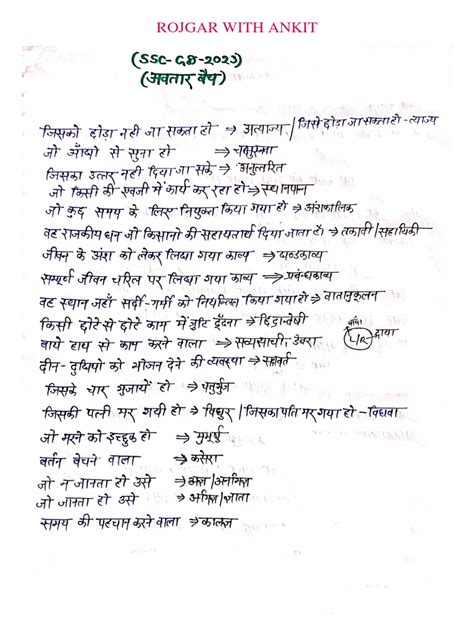 ROJGAR WITH ANKIT
(SSC-GD-2023)
(अवतार बैच)
जिसको छोड़ा नहीं जा सकता हो → अत्याज्य / जिसे छोड़ा जा सकता हो - त्याज्य
जो आँखों से सुना हो → चक्षुश्रवा
जिसका उत्तर नहीं दिया जा सके → अनुत्तरित
जो किसी की एवजी में कार्य कर रहा हो → स्थानापन्न
जो कुछ समय के लिए नियुक्त किया गया हो → अंशकालिक
वह राजकीय धन जो किसानों की सहायतार्थ दिया जाता है। → तकावी /
जीवन के अंश को लेकर लिखा गया काव्य → खण्डकाव्य
सम्पूर्ण जीवन चरित पर लिखा गया काव्य → प्रबन्धकाव्य
वह स्थान जहाँ सर्दी-गर्मी को नियन्त्रित किया गया हो → वातानुकूलन
किसी छोटे से छोटे काम में त्रुटि ढूँढना → छिद्रान्वेषी
बायें हाथ से काम करने वाला → सव्यसाची, L/R दायां
दीन-दुखियों को भोजन देने की व्यवस्था → सदावर्त
जिसके चार भुजायें हो → चतुर्भुज
जिसकी पत्नी मर गयी हो → विधुर / जिसका पति मर गया हो - विधवा
जो मरने को इच्छुक हो → मुमूर्षु
बर्तन बेचने वाला → कसेरा
जो न जानता हो उसे → अज्ञ / अनभिज्ञ
जो जानता हो उसे → अभिज्ञ / ज्ञाता
समय की पहचान करने वाला → कालज्ञ